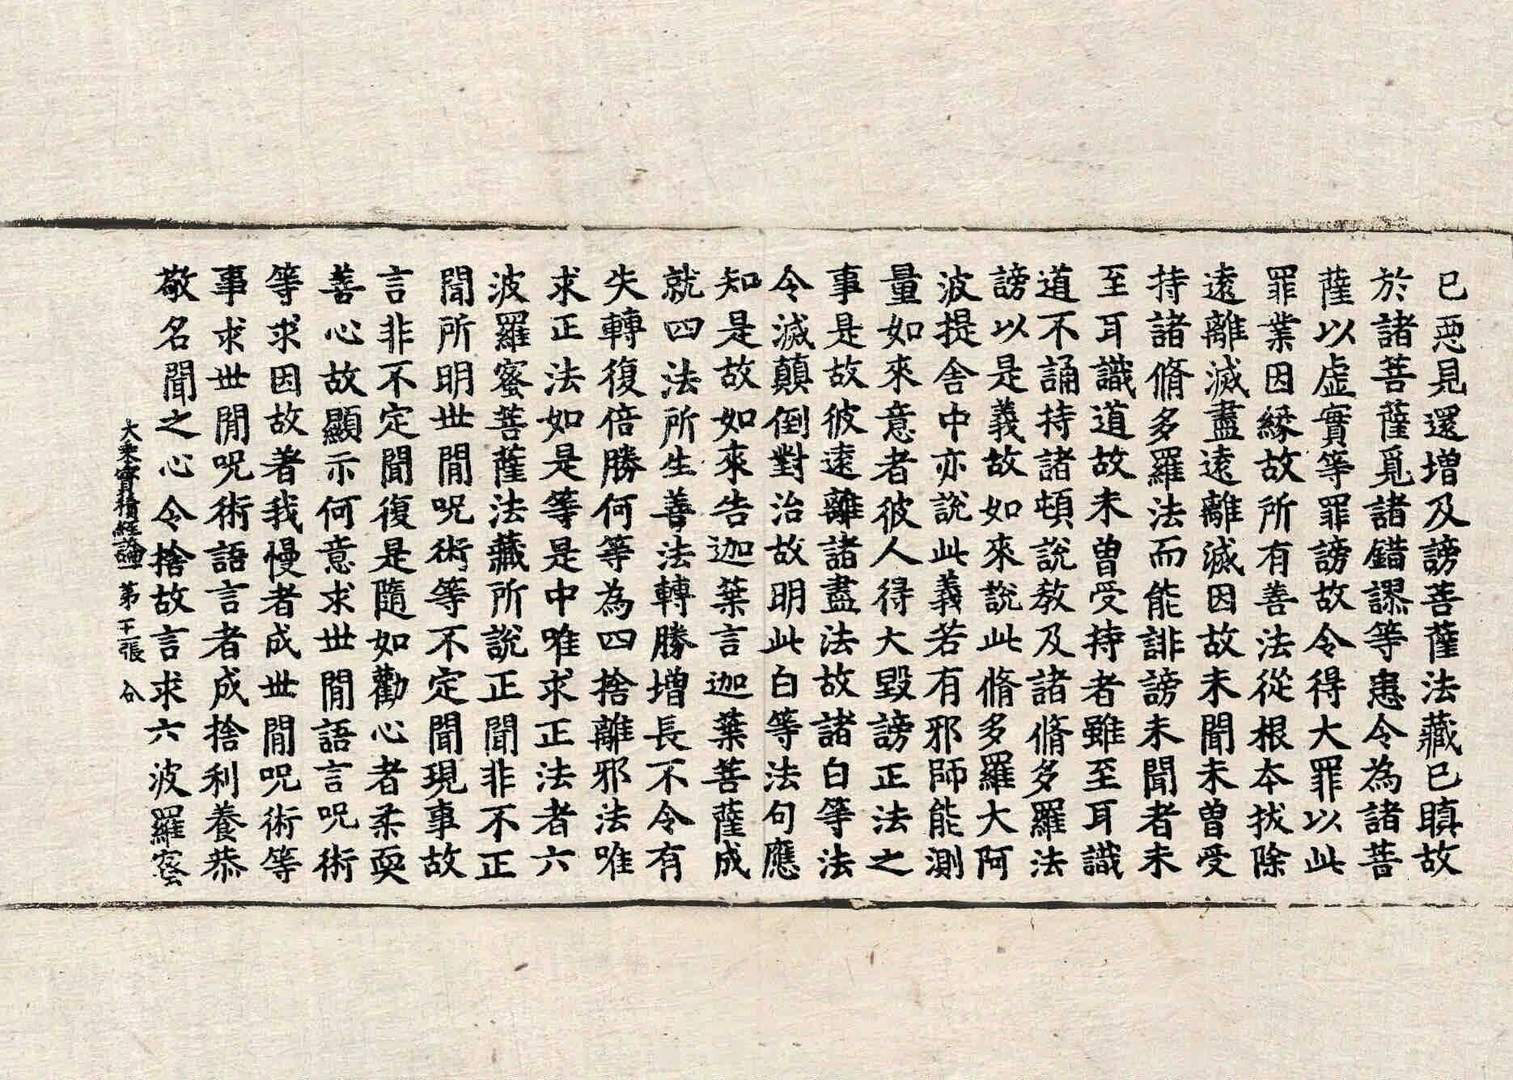 已惡見還增及謗菩薩法藏已瞋故
於諸菩薩覓諸錯謬等患令為諸菩
薩以虛實等罪謗故令得大罪以此
罪業因緣故所有善法從根本拔除
遠離滅盡遠離滅因故未聞未曾受
持諸脩多羅法而能誹謗未聞者未
至耳識道故未曾受持者雖至耳識
道不誦持諸頓說教及諸脩多羅法
謗以是義故如來說此脩多羅大阿
波提舍中亦說此義若有邪師能測
量如來意者彼人得大毀謗正法之
事是故彼遠離諸盡法故諸白等法
令滅顛倒對治故明此白等法句應
知是故如來告迦葉言迦葉菩薩成
就四法所生善法轉勝增長不令有
失轉復倍勝何等為四捨離邪法唯
求正法如是等是中唯求正法者六
波羅蜜菩薩法藏所說正聞非不正
聞所明世間呪術等不定聞現事故
言非不定聞復是隨如勸心者柔耎
善心故顯示何意求世間語言呪術
等求因故著我慢者成世間呪術等
事求世間呪術語言者成捨利養恭
敬名聞之心令捨故言求六波羅蜜
大乘寶積經論 第 張